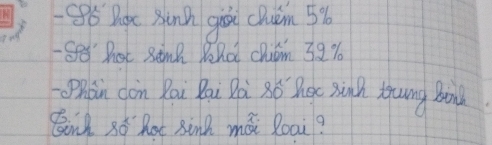 - Số học sinh giỏi chiếm 5%
- Số học sinh khá chiếm 32%
- Phần còn lại lại là số học sinh trung bình
Tính số học sinh mỗi loại?